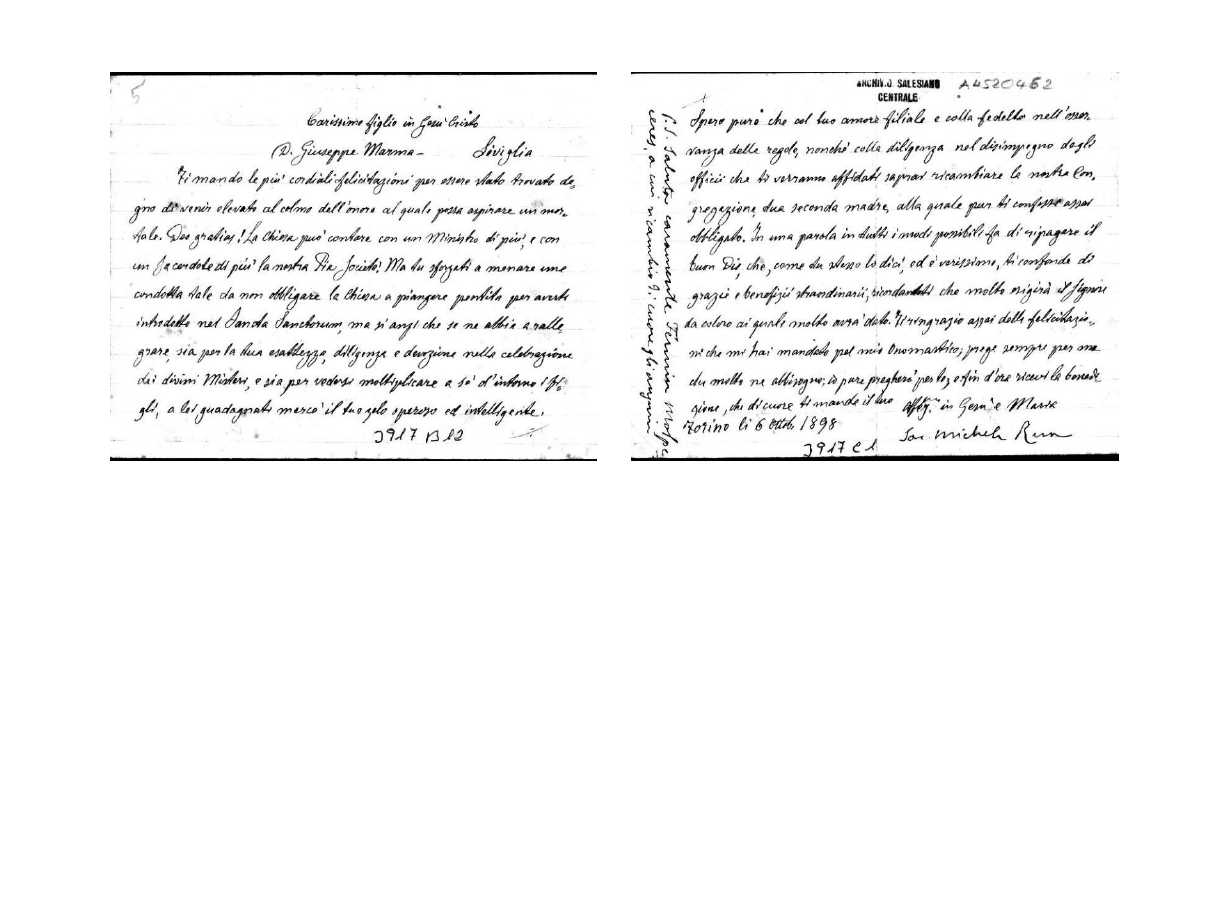 5
Carissimo figlio in Gesù Cristo
(D. Giuseppe Marma - Siviglia
Ti mando le più cordiali felicitazioni per essere stato trovato de,
gno di venir elevato al colmo dell'onore al quale possa aspirare un mor,
tale. Deo gratias! La Chiesa può contare con un Ministro di più, e con
un Sacerdote di più la nostra Pia Società! Ma tu sforzati a menare una
condotta tale da non obbligare la Chiesa a piangere pentita per averti
introdotto nel Sancta Sanctorum, ma sì anzi che se ne abbia a ralle
grare, sia per la tua esattezza, diligenza e devozione nella celebrazione
dei divini Misteri, e sia per vedersi moltiplicare a sé d'intorno i fi-
gli, a lei guadagnati mercè il tuo zelo operoso ed intelligente.
3917 B12
ARCHIVIO SALESIANO
CENTRALE
A4520462
Spero pure che col tuo amore filiale e colla fedeltà nell'osser,
vanza delle regole, nonché colla diligenza nel disimpegno degli
officii che ti verranno affidati saprai ricambiare la nostra Con,
gregazione, tua seconda madre, alla quale pur ti confessi assai
obbligato. In una parola in tutti i modi possibili fa di ripagare il
buon Dio, che, come tu stesso lo dici, ed è verissimo, ti confonde di
grazie e benefizii straordinarii, ricordandoti che molto esigirà il Signore
da coloro ai quali molto avrà dato. Ti ringrazio assai delle felicitazio,
ni che mi hai mandato pel mio Onomastico; prega sempre per me
che molto ne abbisogno; io pure pregherò per te, e fin d'ora ricevi la benedi
zione, che di cuore ti manda il tuo affez. in Gesù e Maria
Torino li 6 Ottob. 1898
Sac. Michele Rua
3917 C1
P.S. Saluta caramente
a cui ricambio di cuore gli auguri